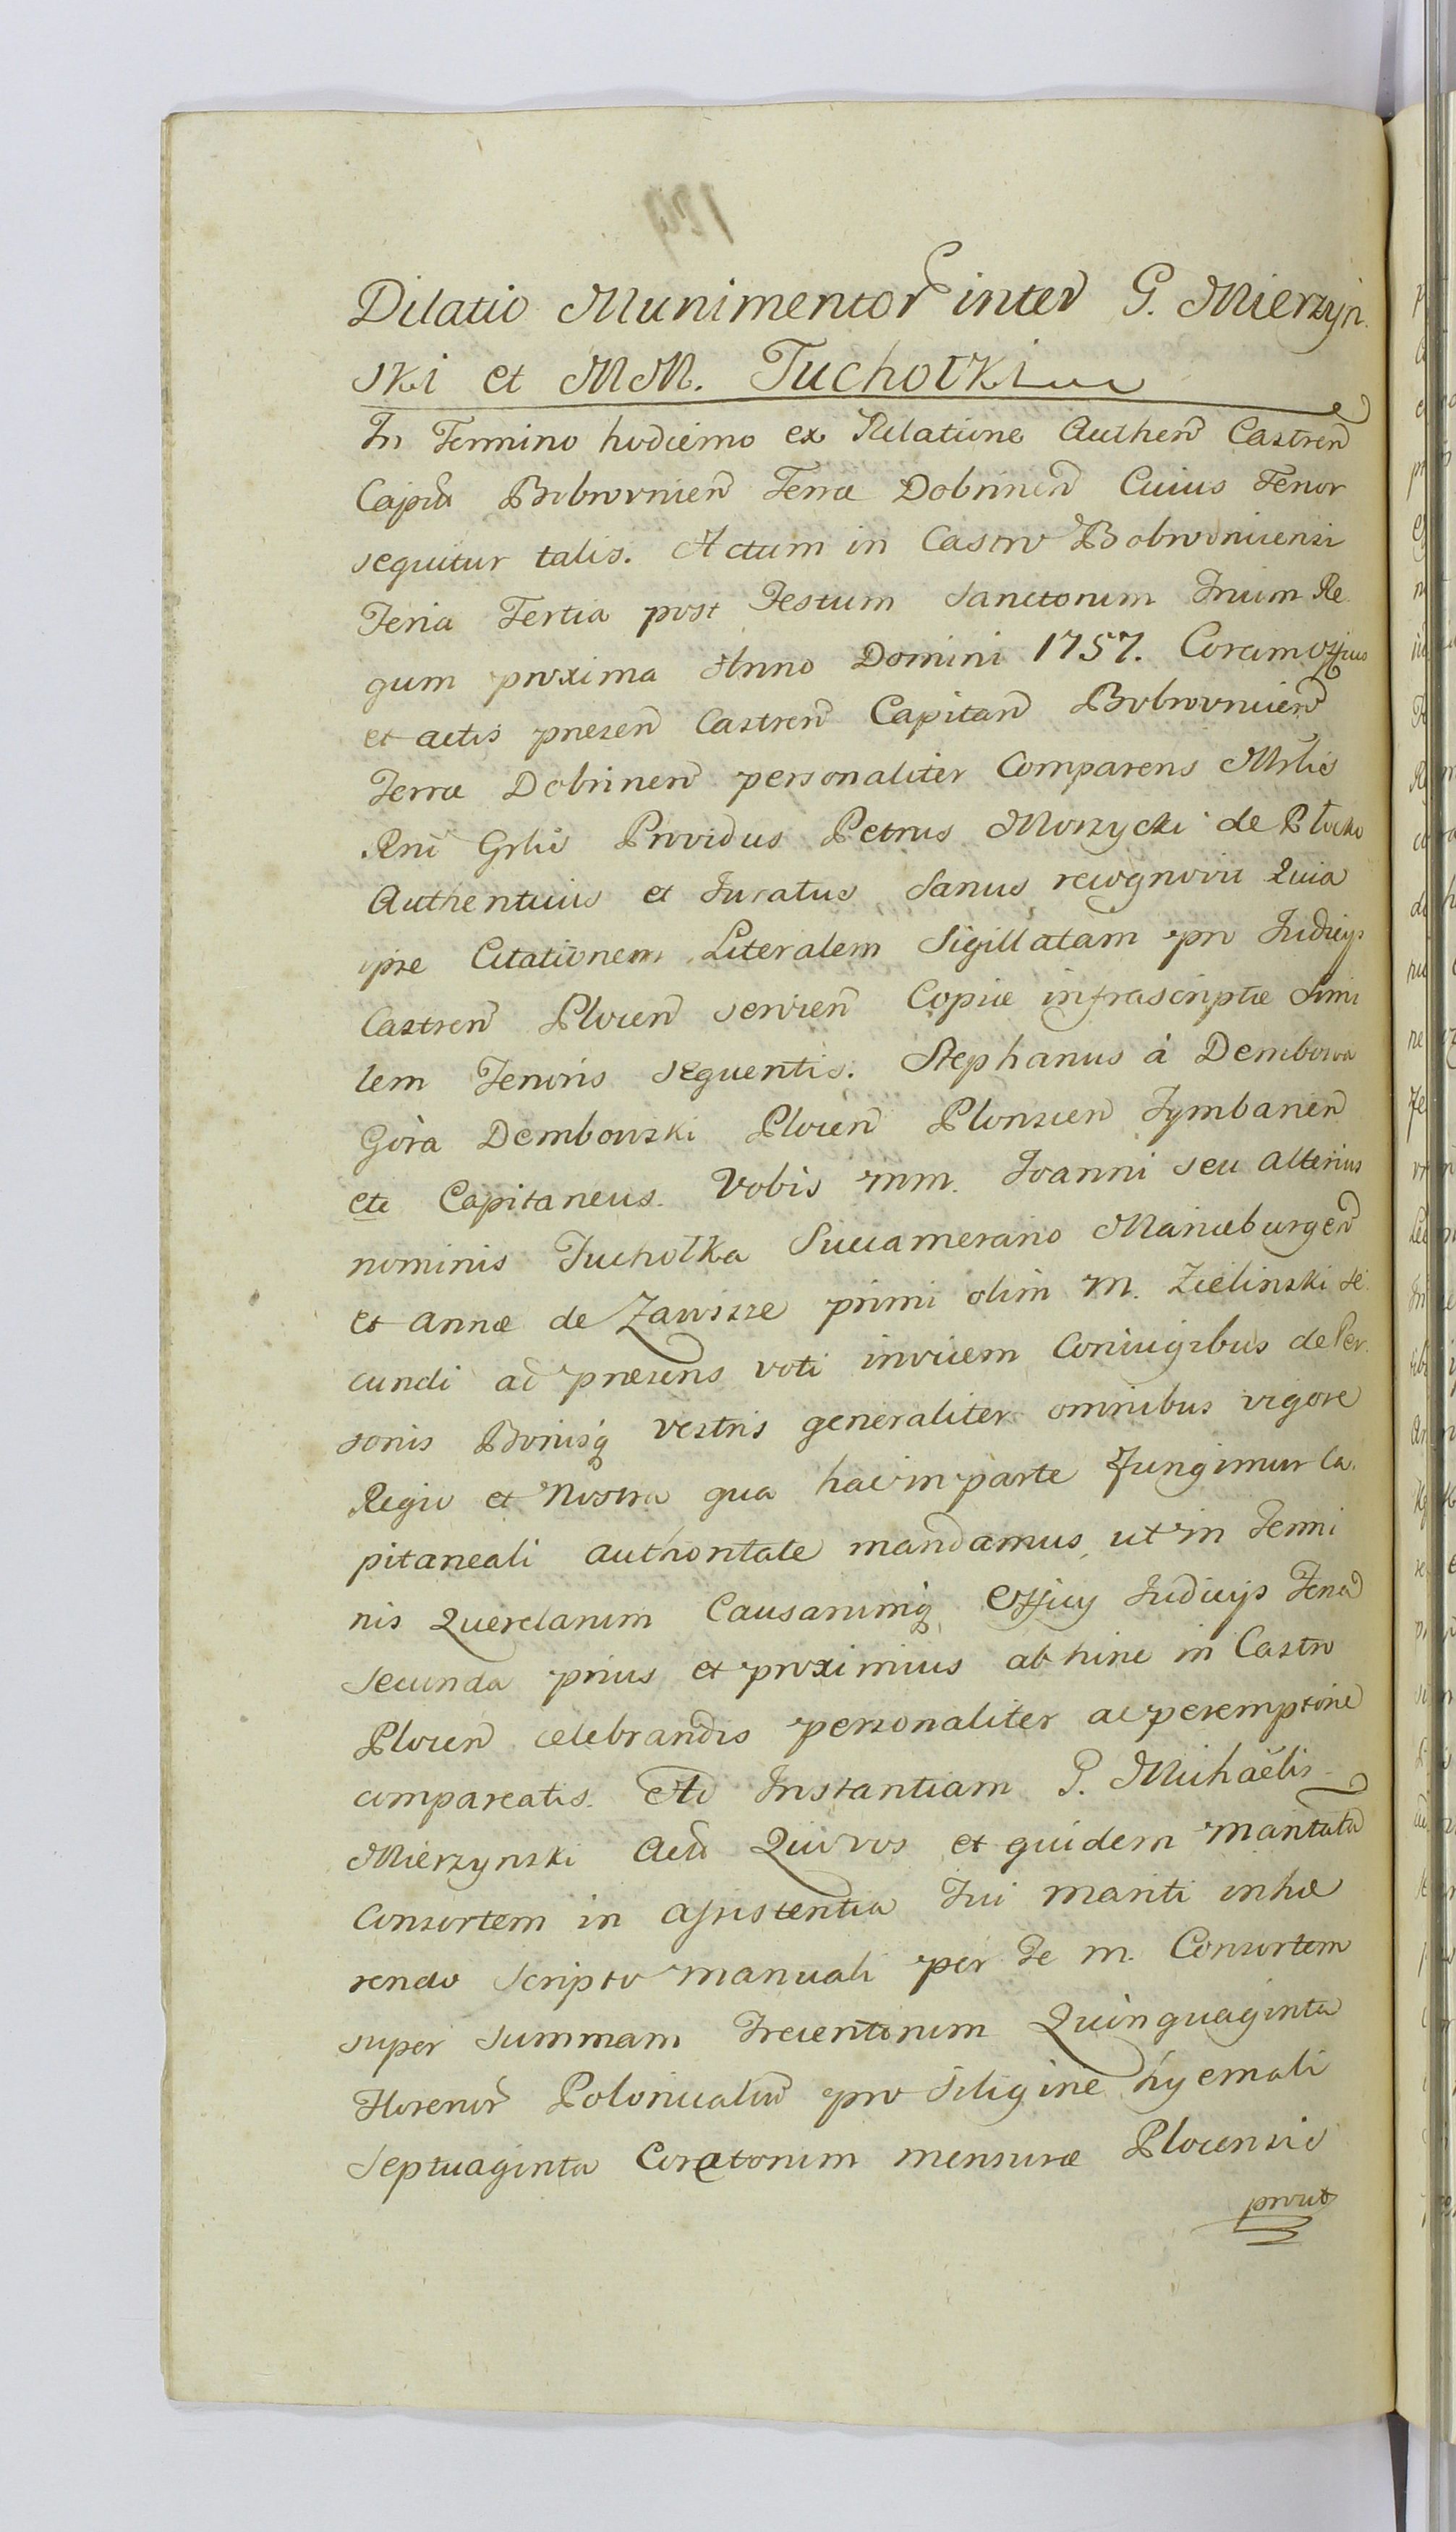 Dilatio Munimentor inter G. Mierzyn
ski et MM. Tuchołki
In Termino hodierno ex Relatione Authen Castren
Capitli Bobrovnien Terræ Dobrinen Cuius Tenor
sequitur talis. Actum in Castro Bobrovnicensi
Feria Tertia post Festum Sanctorum Trium Re
gum proxima Anno Domini 1757. Coram Offius
et actis præsen Castren Capitan Bobrovnicen
Terræ Dobrinen personaliter Comparens Mrlis
Rni Grlis Providus Petrus Morzycki de Płocko
Authenticus et Juratus Sanus recognovit Quia
ipse Citationem Literalem Sigillatam pro Judicijs
Castren Plocen servien Copiæ infrascriptæ Simi
lem Tenoris sequentis. Stephanus à Dembowa
Góra Dembowski Plocen Plonscen Tymbarien
etc Capitaneus. Vobis mm. Joanni seu alterius
nominis Tuchołka Succamerario Mariæburgen
et annæ de Zawisze primi olim M. Zielinski se
cundi ad præsens voti invicem Coniugibus de Per
sonis Bonisq vestris generaliter omnibus vigore
Regio et Nostra qua hac in parte fungimur Ca
pitaneali authoritate mandamus, ut in Termi
nis Querelarum Causarumq Officij Judicijs Feria
Secunda prius et proximius ab hinc in Castro
Plocen celebrandis personaliter ac peremptorie
compareatis. Ad Instantiam G. Michaëlis
Mierzynski Act Qui vos et quidem maritata
Consortem in assistentia Tui mariti inhæ
rendo Scripto manuali per Te M. Consortem
super Summam Trecentorum Quinquaginta
Florenor Polonicaliu pro Siligine hyemali
Septuaginta Coretorum mensuræ Plocensis
prout